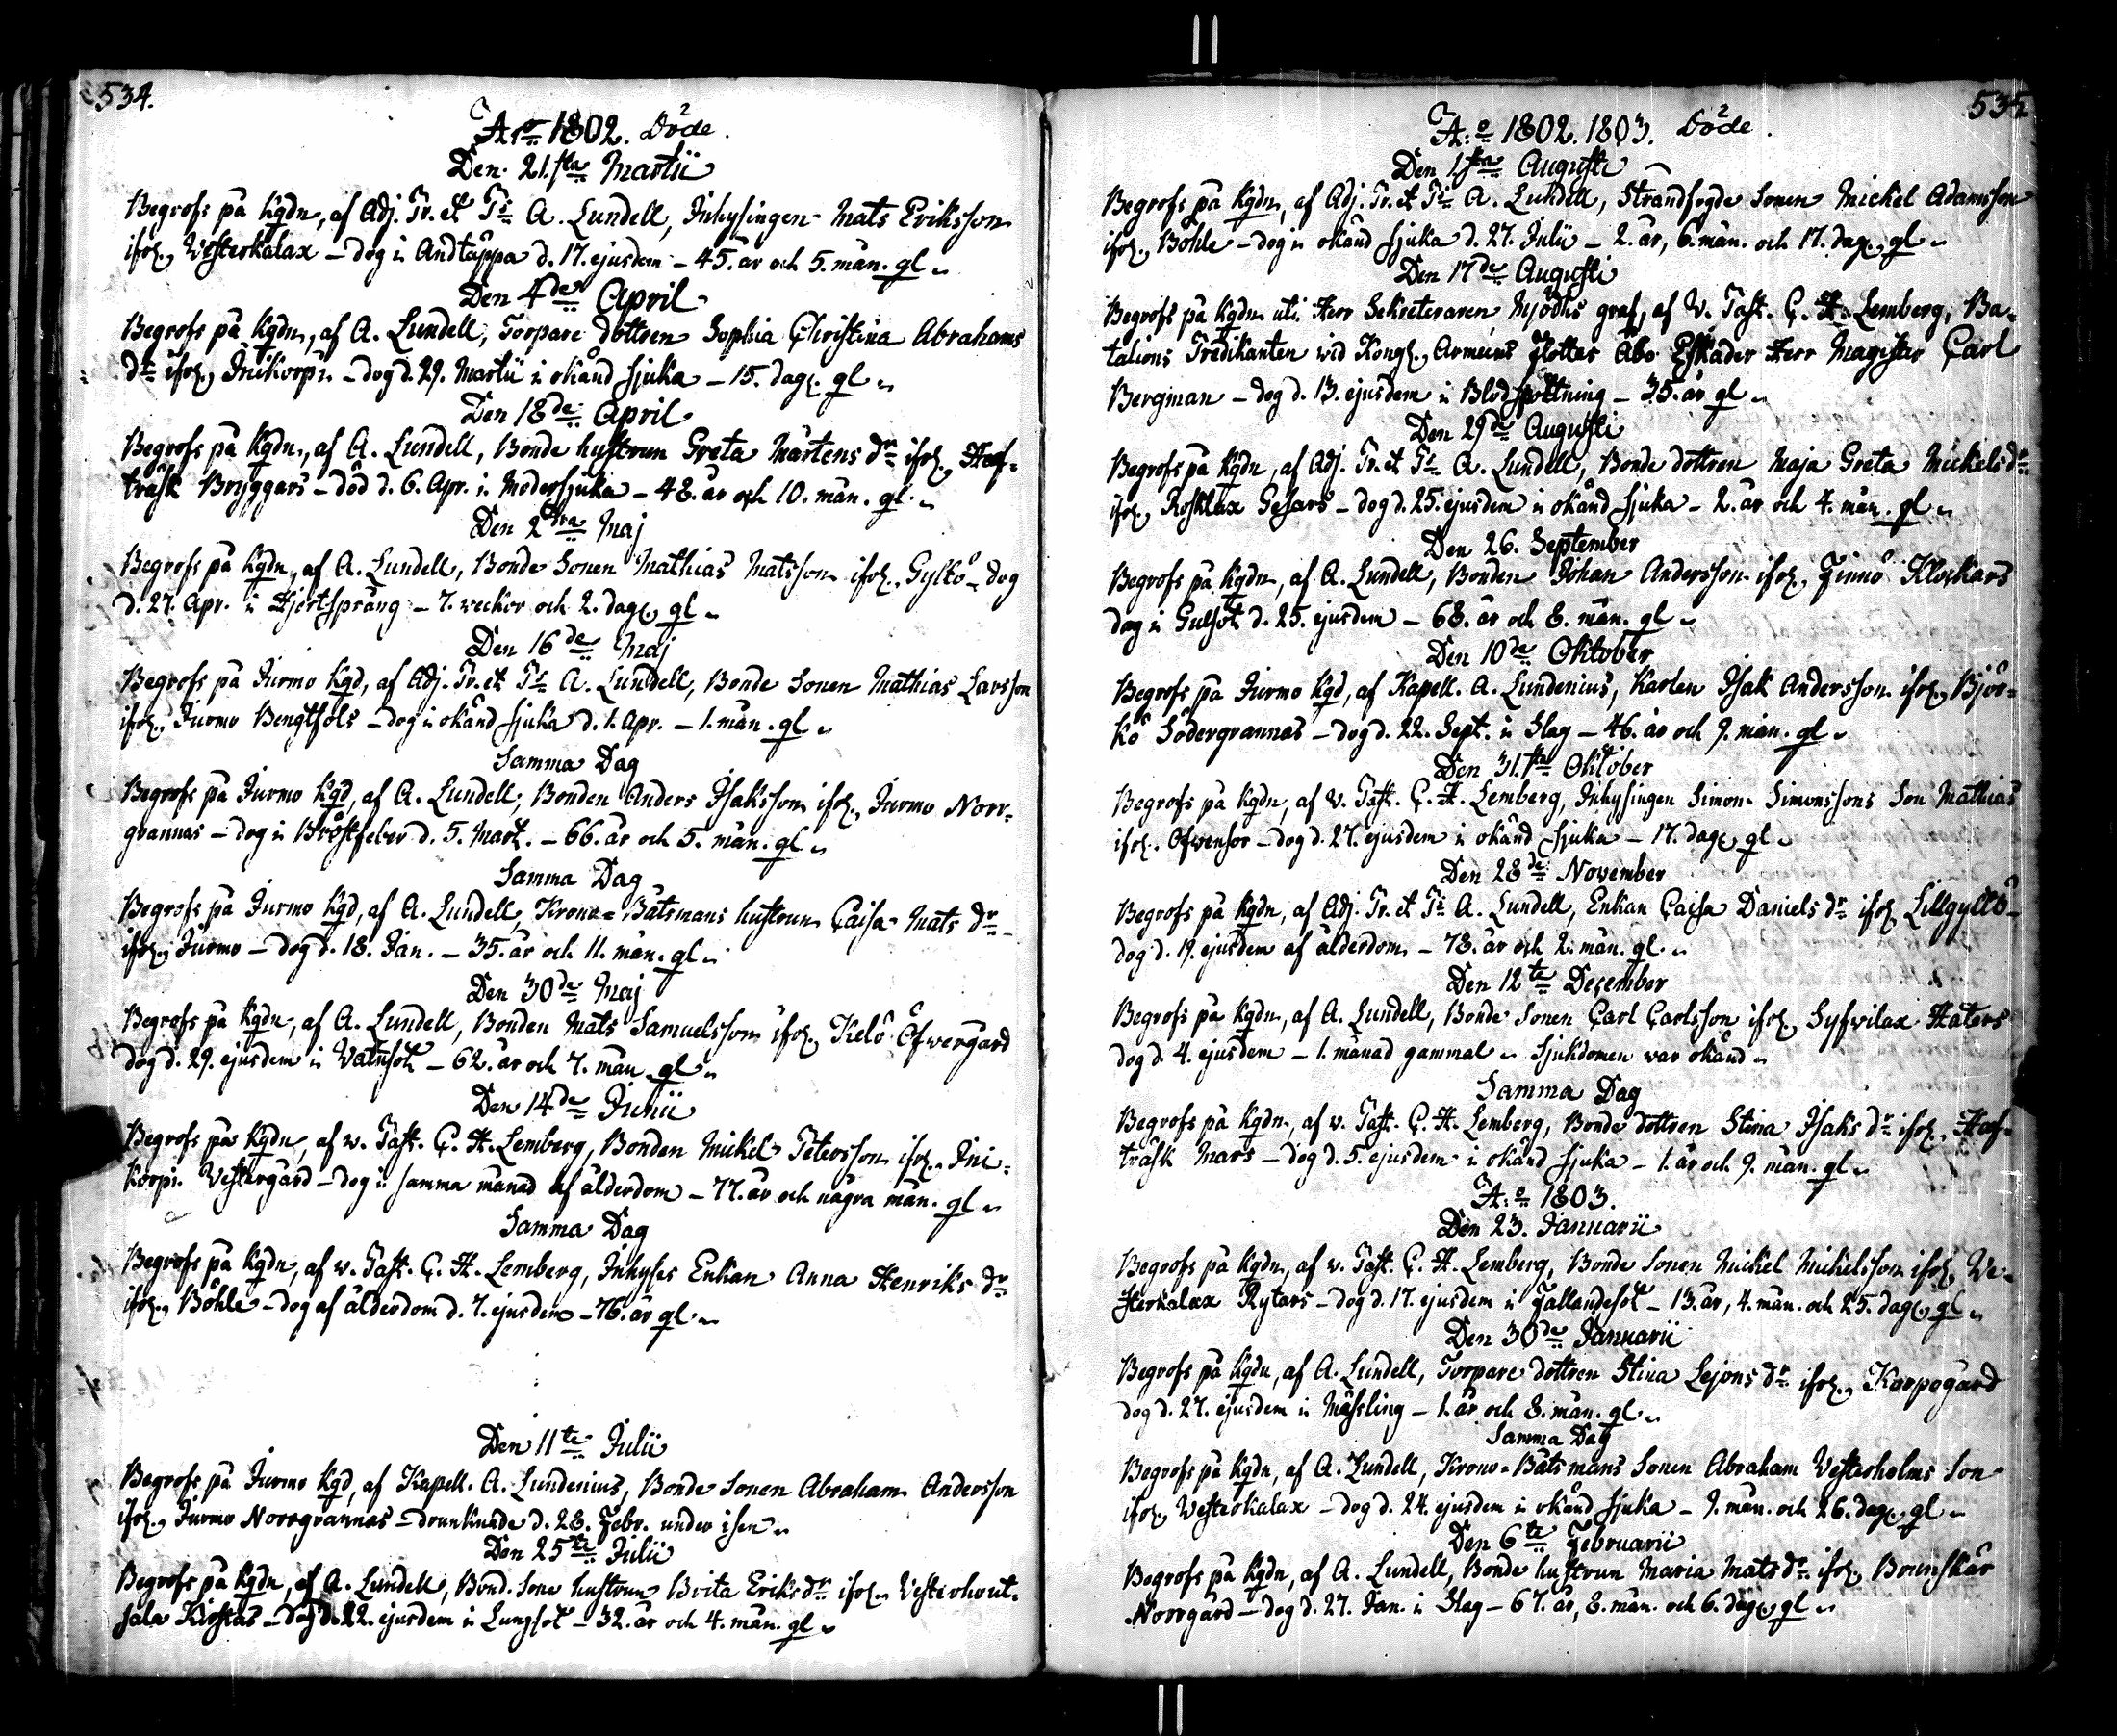 534.
A:o 1802. Döde.
Den 21.sta Martii
Begrofs på Kgdn, af Adj. Pr. et Ps A. Lundell, Inhysingen Mats Eriksson
ifrl. Vesterkalax – dog i Andtäppa d. 17. ejusdem – 45. år och 5. mån. gl
Den 4de April
Begrofs på Kgdn, af A. Lundell, Torpare dottren Sophia Christina Abrahams
dr ifrl. Inikorpi – dog d. 29. Martii i okänd sjuka – 15. dag. gl
Den 18de April
Begrofs på Kgdn, af A. Lundell, Bonde hustrun Greta Mårtens dr ifrl. Haf-
träsk Bryggars – död d. 6. Apr. i Modersjuka – 48. år och 10. mån. gl
Den 2dra Maj
Begrofs på Kgdn, af A. Lundell, Bonde Sonen Mathias Matsson ifrl. Gyltö – dog
d. 27. Apr. i Hjertsprång – 7. veckor och 2. dag. gl
Den 16de Maj
Begrofs på Jurmo Kgd, af Adj. Pr. et Ps A. Lundell, Bonde Sonen Mathias Larsson
ifrl. Jurmo Bengtsols – dog i okänd sjuka d. 1. Apr. – 1. mån. gl
Samma Dag
Begrofs på Jurmo Kgd, af A. Lundell, Bonden Anders Isaksson ifrl. Jurmo Norr-
grannas – dog i Bröstfeber d. 5. Mart. – 66. år och 5. mån. gl
Samma Dag
Begrofs på Jurmo Kgd, af A. Lundell, Krono-Båtsmans hustrun Caisa Mats dr
ifrl. Jurmo – dog d. 18. Jan. – 35. år och 11. mån. gl
Den 30de Maj
Begrofs på Kgdn, af A. Lundell, Bonden Mats Samuelsson ifrl. Kelö Öfvergård
dog d. 29. ejusdem i Vatusot – 62. år och 7. mån gl
Den 14de Junii
Begrofs på Kgdn, af v. Past. C. H. Lemberg, Bonden Mickel Petersson ifrl. Ini-
korpi Vestergård – dog i samma månad af ålderdom – 77. år och några mån. gl
Samma Dag
Begrofs på Kgdn, af v. Past. C. H. Lemberg, Inhyses Enkan Anna Henriks dr
ifrl. Böhle – dog af ålderdom d. 7. ejusdem – 76. år gl
Den 11te Julii
Begrofs på Jurmo Kgd, af Kapell. A. Lundenius, Bonde Sonen Abraham Andersson
ifrl. Jurmo Norrgrannas – drunknade d. 28. Febr. under isen
Den 25te Julii
Begrofs på Kgdn, af A. Lundell, Bond. Sone hustrun Brita Eriks dr ifrl. Vesterhout-
sala Kirstas – dog d. 22. ejusdem i Lungsot – 32. år och 4. mån. gl
535
A:o 1802. 1803. Döde.
Den 1.sta Augusti
Begrofs på Kgdn, af Adj. Pr. et Ps A. Lundell, Strandfogde Sonen Mickel Adamsson
ifrl. Böhle – dog i okänd sjuka d. 27. Julii – 2. år, 6. mån. och 17. dag. gl
Den 17de Augusti
Begrofs på Kgdn uti Herr Sekreteraren Mjödhs graf, af V. Past. C. H. Lemberg, Ba-
talions Predikanten wid Kongl. Armeens flottas Åbo Eskader Herr Magister Carl
Bergman – dog d. 13. ejusdem i Blodspottning – 35. år gl
Den 29de Augusti
Begrofs på Kgdn, af Adj. Pr. et Ps A. Lundell, Bonde dottren Maja Greta Mickels dr
ifrl. Rosklax Gesars – dog d. 25. ejusdem i okänd sjuka – 2. år och 4. mån. gl
Den 26. September
Begrofs på Kgdn, af A. Lundell, Bonden Johan Andersson ifrl. Finnö Klockars
dog i Gulsot d. 25. ejusdem – 68. år och 8. mån. gl
Den 10de Oktober
Begrofs på Jurmo Kgd, af Kapell. A. Lundenius, Karlen Isak Andersson ifrl. Björ-
kö Södergrannas – dog d. 22. Sept. i Slag – 46. år och 9. mån. gl
Den 31.sta Oktober
Begrofs på Kgdn, af V. Past. C. H. Lemberg, Inhysingen Simon Simonssons Son Mathias
ifrl. Ofvensor – dog d. 27. ejusdem i okänd sjuka – 17. dag. gl
Den 28de November
Begrofs på Kgdn, af Adj. Pr. et Ps A. Lundell, Enkan Caisa Daniels dr ifrl. Lillgyltö
dog d. 19. ejusdem af ålderdom – 78. år och 2. mån. gl
Den 12te December
Begrofs på Kgdn, af A. Lundell, Bonde Sonen Carl Carlsson ifrl. Syfvilax Haters
dog d. 4. ejusdem – 1. månad gammal. Sjukdomen war okänd
Samma Dag
Begrofs på Kgdn, af v. Past. C. H. Lemberg, Bonde dottren Stina Isaks dr ifrl. Haf-
träsk Mars – dog d. 5. ejusdem i okänd sjuka – 1. år och 9. mån. gl
A:o 1803.
Den 23. Januarii
Begrofs på Kgdn, af v. Past. C. H. Lemberg, Bonde Sonen Mickel Mickelsson ifrl. Ve-
sterkalax Rytars – dog d. 17. ejusdem i Fallandesot – 13. år, 4. mån. och 25. dag. gl
Den 30de Januarii
Begrofs på Kgdn, af A. Lundell, Torpare dottren Stina Lejons dr ifrl. Korpogård
dog d. 27. ejusdem i Mässling – 1. år och 8. mån. gl
Samma Dag
Begrofs på Kgdn, af A. Lundell, Krono-Båtsmans Sonen Abraham Vesterholms Son
ifrl. Vesterkalax – dog d. 24. ejusdem i okänd sjuka – 9. mån. och 26. dag. gl
Den 6te Februarii
Begrofs på Kgdn, af A. Lundell, Bonde hustrun Maria Mats dr ifrl. Brunskär
Norrgård – dog d. 27. Jan. i Slag – 67. år, 8. mån. och 6. dag. gl